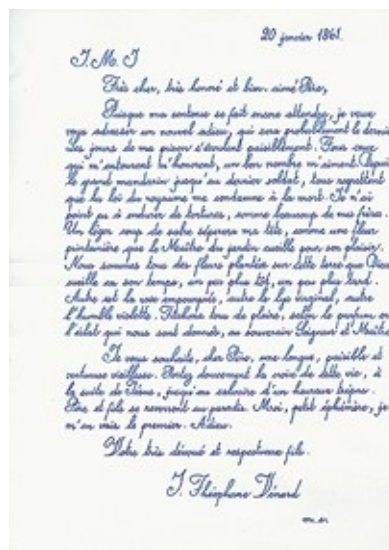 20 janvier 1861.
J. M. J
Très cher, très honoré et bien-aimé Père,
Puisque ma sentence se fait encore attendre, je veux
vous adresser un nouvel adieu, qui sera probablement le dernier.
Les jours de ma prison s'écoulent paisiblement. Tous ceux
qui m'entourent m'honorent, un bon nombre m'aiment. Depuis
le grand mandarin jusqu'au dernier soldat, tous regrettent
que la loi du royaume me condamne à la mort. Je n'ai
point eu à endurer de tortures, comme beaucoup de mes frères.
Un léger coup de sabre séparera ma tête, comme une fleur
printanière que le Maître du jardin cueille pour son plaisir.
Nous sommes tous des fleurs plantées sur cette terre que Dieu
cueille en son temps, un peu plus tôt, un peu plus tard.
Autre est la rose empourprée, autre le lys virginal, autre
l'humble violette. Tâchons tous de plaire, selon le parfum ou
l'éclat qui nous sont donnés, au souverain Seigneur et Maître.
Je vous souhaite, cher Père, une longue, paisible et
vertueuse vieillesse. Portez doucement la croix de cette vie, à
la suite de Jésus, jusqu'au calvaire d'un heureux trépas.
Père et fils se reverront au paradis. Moi, petit éphémère, je
m'en vais le premier. Adieu.
Votre très dévoué et respectueux fils.
J. Théophane Vénard